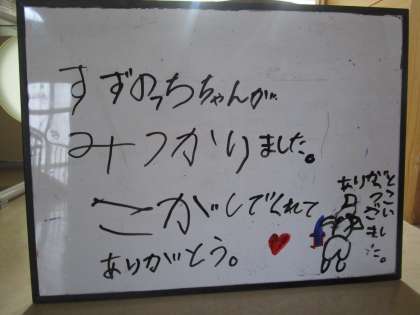 すずのっちちゃんが
みつかりました。
さがしてくれて
ありがとう。
ありがとう
ございました。